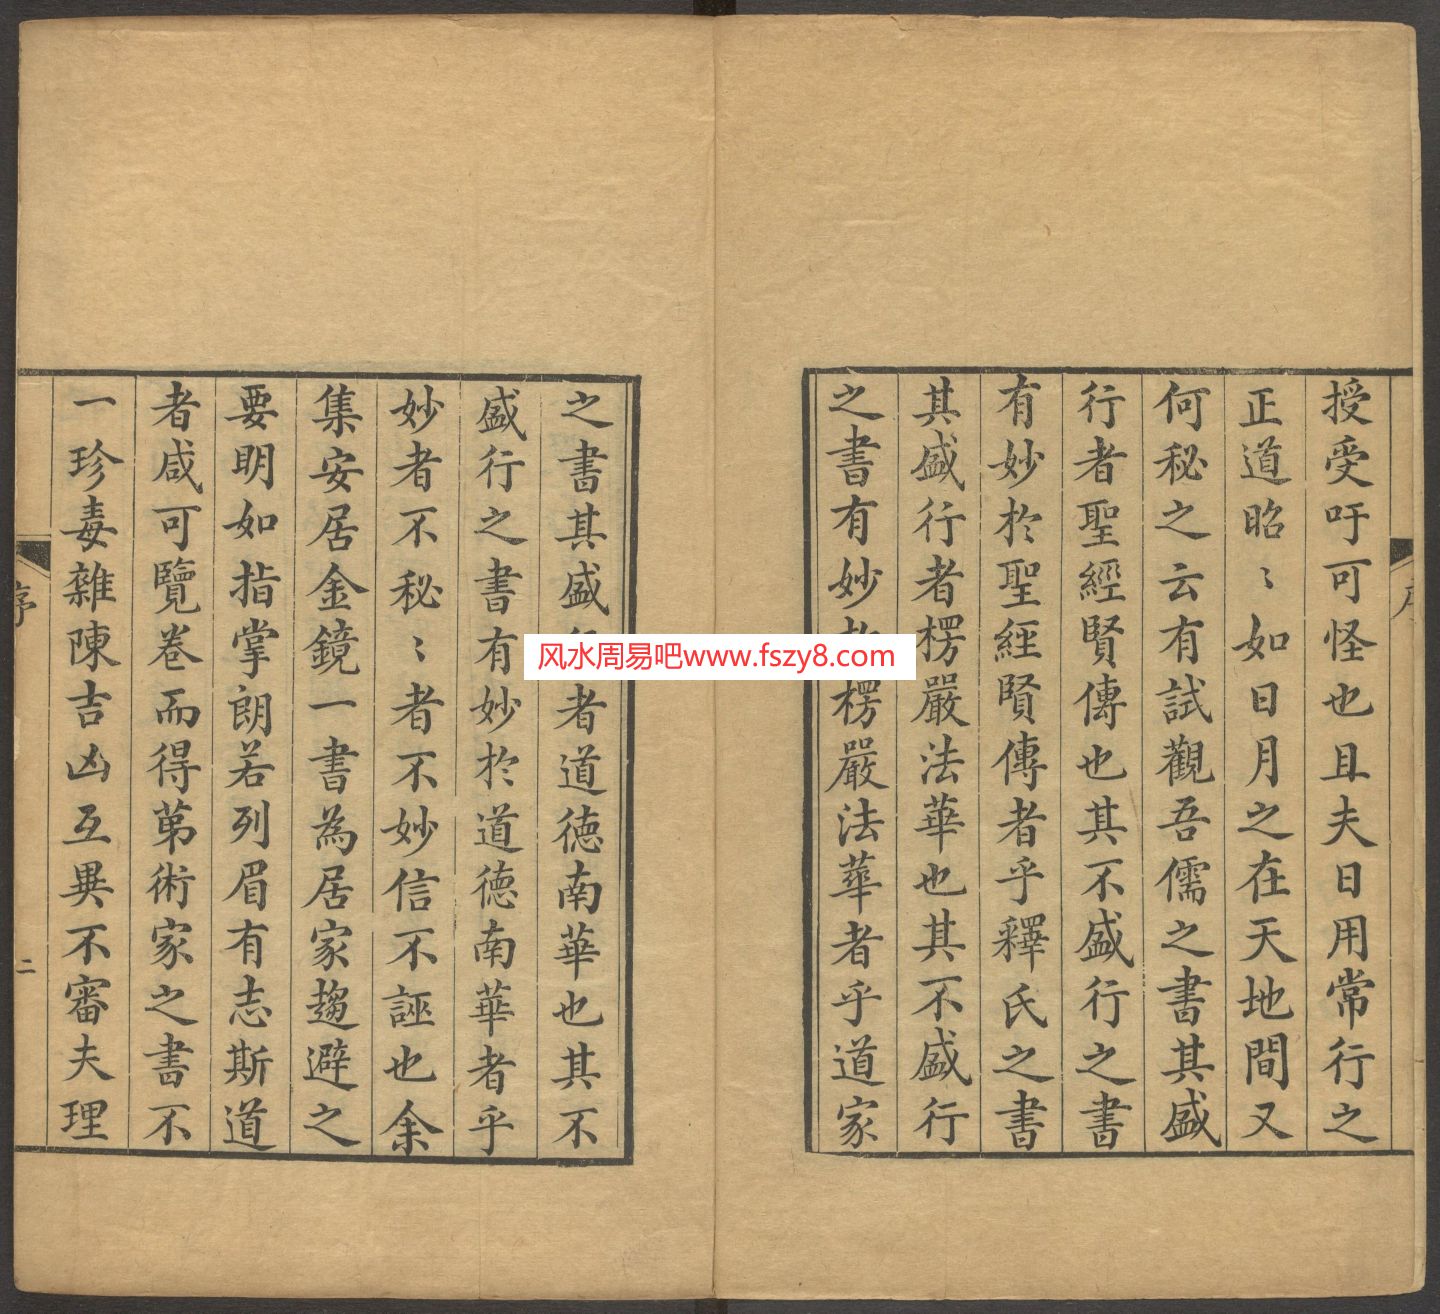 授受吁可怪也且夫日用常行之
正道昭〻如日月之在天地間又
何秘之云有試觀吾儒之書其盛
行者聖經賢傳也其不盛行之書
有妙於聖經賢傳者乎釋氏之書
其盛行者楞嚴法華也其不盛行
之書有妙楞嚴法華者乎道家
之書其盛者道德南華也其不
盛行之書有妙於道德南華者乎
妙者不秘〻者不妙信不誣也余
集安居金鏡一書為居家趨避之
要明如指掌朗若列眉有志斯道
者咸可覽卷而得第術家之書不
一珍毒雜陳吉凶互異不審夫理
序
二
风水周易吧www.fszy8.com